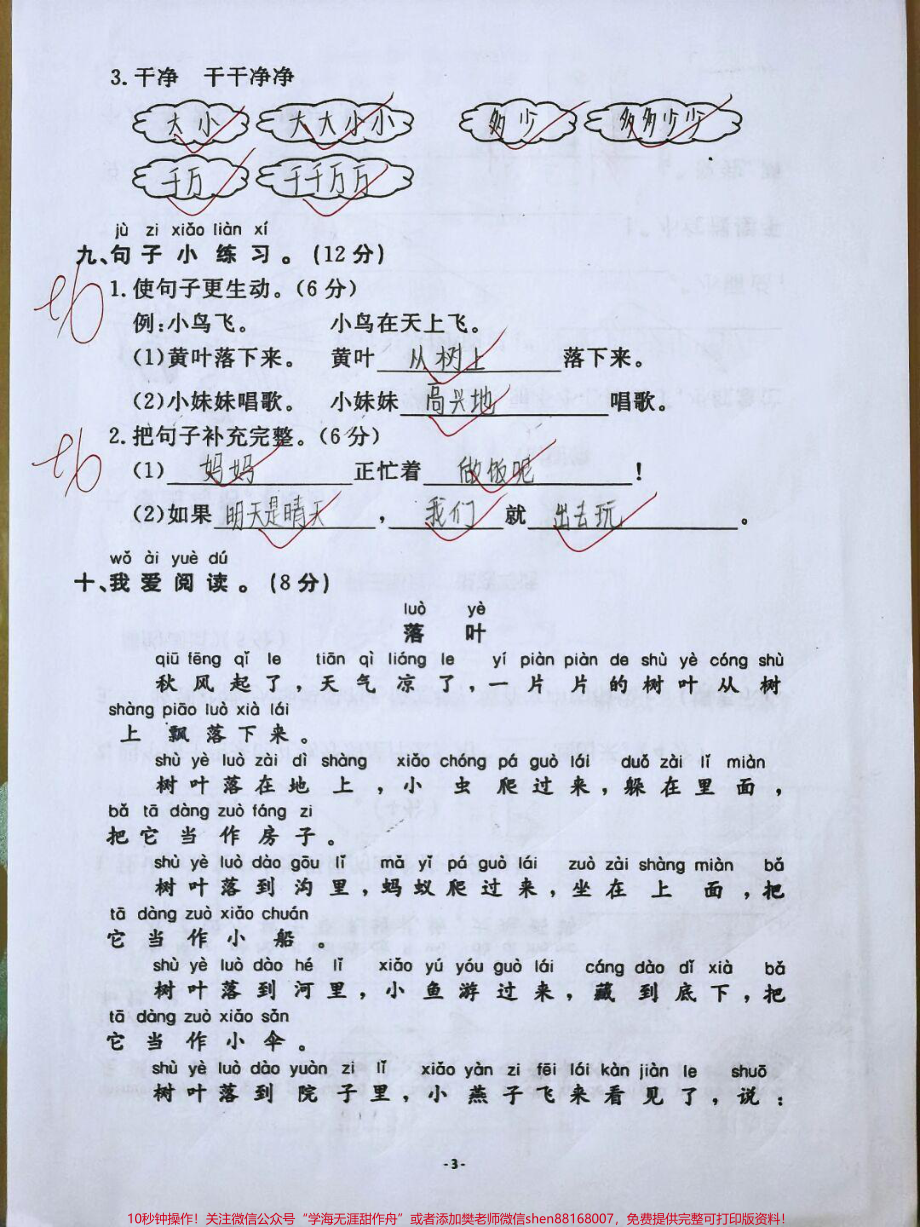 3.干净 干干净净
大小 大大小小 多少 多多少少
千万 千千万万
jù zi xiǎo liàn xí
九、句子小练习。(12分)
1.使句子更生动。(6分)
例:小鸟飞。 小鸟在天上飞。
(1)黄叶落下来。 黄叶 从树上 落下来。
(2)小妹妹唱歌。 小妹妹 高兴地 唱歌。
2.把句子补充完整。(6分)
(1) 妈妈 正忙着 做饭呢 !
(2)如果 明天是晴天 , 我们 就 出去玩 。
wǒ ài yuè dú
十、我爱阅读。(8分)
luò yè
落叶
qiū fēng qǐ le tiān qì liáng le yí piàn piàn de shù yè cóng shù
秋风起了,天气凉了,一片片的树叶从树
shàng piāo luò xià lái
上飘落下来。
shù yè luò zài dì shàng xiǎo chóng pá guò lái duǒ zài lǐ miàn
树叶落在地上,小虫爬过来,躲在里面,
bǎ tā dàng zuò fáng zi
把它当作房子。
shù yè luò dào gōu lǐ mǎ yǐ pá guò lái zuò zài shàng miàn bǎ
树叶落到沟里,蚂蚁爬过来,坐在上面,把
tā dàng zuò xiǎo chuán
它当作小船。
shù yè luò dào hé lǐ xiǎo yú yóu guò lái cáng dào dǐ xià bǎ
树叶落到河里,小鱼游过来,藏到底下,把
tā dàng zuò xiǎo sǎn
它当作小伞。
shù yè luò dào yuàn zi lǐ xiǎo yàn zi fēi lái kàn jiàn le shuō
树叶落到院子里,小燕子飞来看见了,说:
-3-
10秒钟操作!关注微信公众号“学海无涯甜作舟”或者添加樊老师微信shen88168007,免费提供完整可打印版资料!